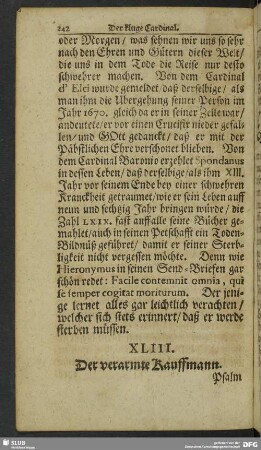 242 Der kluge Cardinal.
oder Morgen/ was sehnen wir uns so sehr
nach den Ehren und Gütern dieser Welt/
die uns in dem Tode die Reise nur desto
schwehrer machen. Von dem Cardinal
d' Elci wurde gemeldet daß derselbige/ als
man ihm die Ubergehung seiner Person im
Jahr 1670. gleich da er in seiner Zelle war/
andeutete/ er vor einen Crucifix nieder gefal-
len/ und GOtt gedanckt/ daß er mit der
Päbstlichen Ehre verschonet blieben. Von
dem Cardinal Baronio erzehlet Spondanus
in dessen Leben/ daß derselbige/ als ihm XIII.
Jahr vor seinem Ende bey einer schwehren
Kranckheit getraumet/ wie er sein Leben auff
neun und sechtzig Jahr bringen würde/ die
Zahl LXIX. fast auff alle seine Bücher ge-
mahlet/ auch in seinen Petschafft ein Toden-
Bildnüß geführet/ damit er seiner Sterb-
ligkeit nicht vergessen möchte. Denn wie
Hieronymus in seinen Send-Briefen gar
schön redet: Facile contemnit omnia, qui
se semper cogitat moriturum. Der jeni-
ge lernet alles gar leichtlich verachten/
welcher sich stets erinnert/ daß er werde
sterben müssen.
XLIII.
Der verarmte Kauffmann.
Psalm
SLUB
DFG